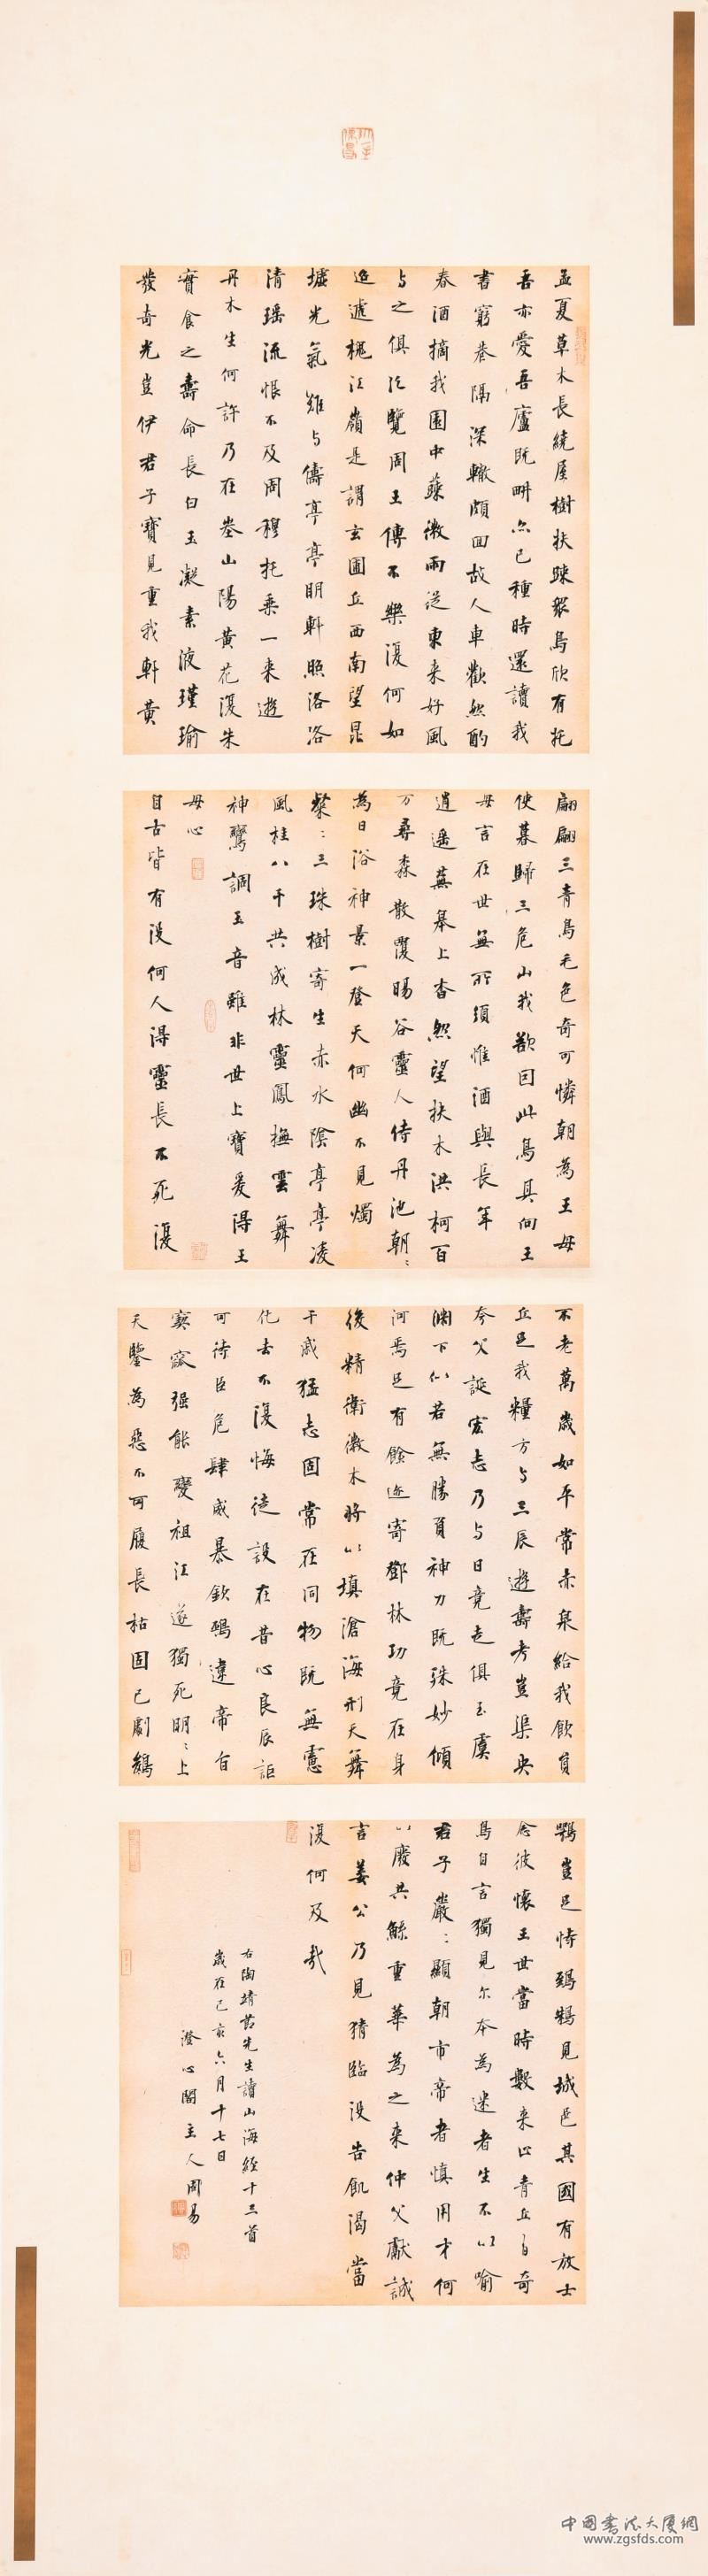 孟夏草木長繞屋樹扶疎眾鳥欣有托
吾亦愛吾廬既畊亦已種時還讀我
書窮巷隔深轍頗回故人車歡然酌
春酒摘我園中蔬微雨從東来好風
与之俱泛覽周王傳不樂復何如
迢遞槐江嶺是謂玄圃丘西南望昆
墟光氣難与儔亭亭明軒照洛洛
清瑶流恨不及周穆托乘一来遊
丹木生何許乃在峚山陽黄花復朱
實食之壽命長白玉凝素液瑾瑜
發奇光豈伊君子寶見重我軒黄
翩翩三青鳥毛色奇可憐朝為王母
使暮歸三危山我欲因此鳥具向王
母言在世無所須惟酒與長年
逍遥蕪皋上杳然望扶木洪柯百
万尋森散覆暘谷靈人侍丹池朝〻
為日浴神景一登天何幽不見燭
粲〻三珠樹寄生赤水陰亭亭凌
風桂八干共成林靈鳳撫雲舞
神鸞調玉音雖非世上寶爰得王
母心
自古皆有没何人得靈長不死復
不老萬歲如平常赤泉給我飲員
丘足我糧方与三辰遊壽考豈渠央
夸父誕宏志乃与日竟走俱至虞
淵下似若無勝負神力既殊妙傾
河焉足有餘迹寄鄧林功竟在身
後精衛微木將以填滄海刑天舞
干戚猛志固常在同物既無慮
化去不復悔徒設在昔心良辰詎
可待臣危肆威暴欽䲹違帝旨
窫窳强能變祖江遂獨死明〻上
天鑒為惡不可履長枯固已劇鵕
鶚豈足恃鴟鴸見城邑其國有放士
念彼懷王世當時數来止青丘有奇
鳥自言獨見尔本為迷者生不以喻
君子巖〻顯朝市帝者慎用才何
以廢共鯀重華為之来仲父獻誠
言姜公乃見猜臨没告飢渴當
復何及哉
右陶靖節先生讀山海經十三首
歲在己亥六月十七日
澄心閣主人周易
中国书法大厦網
www.zgsfds.com